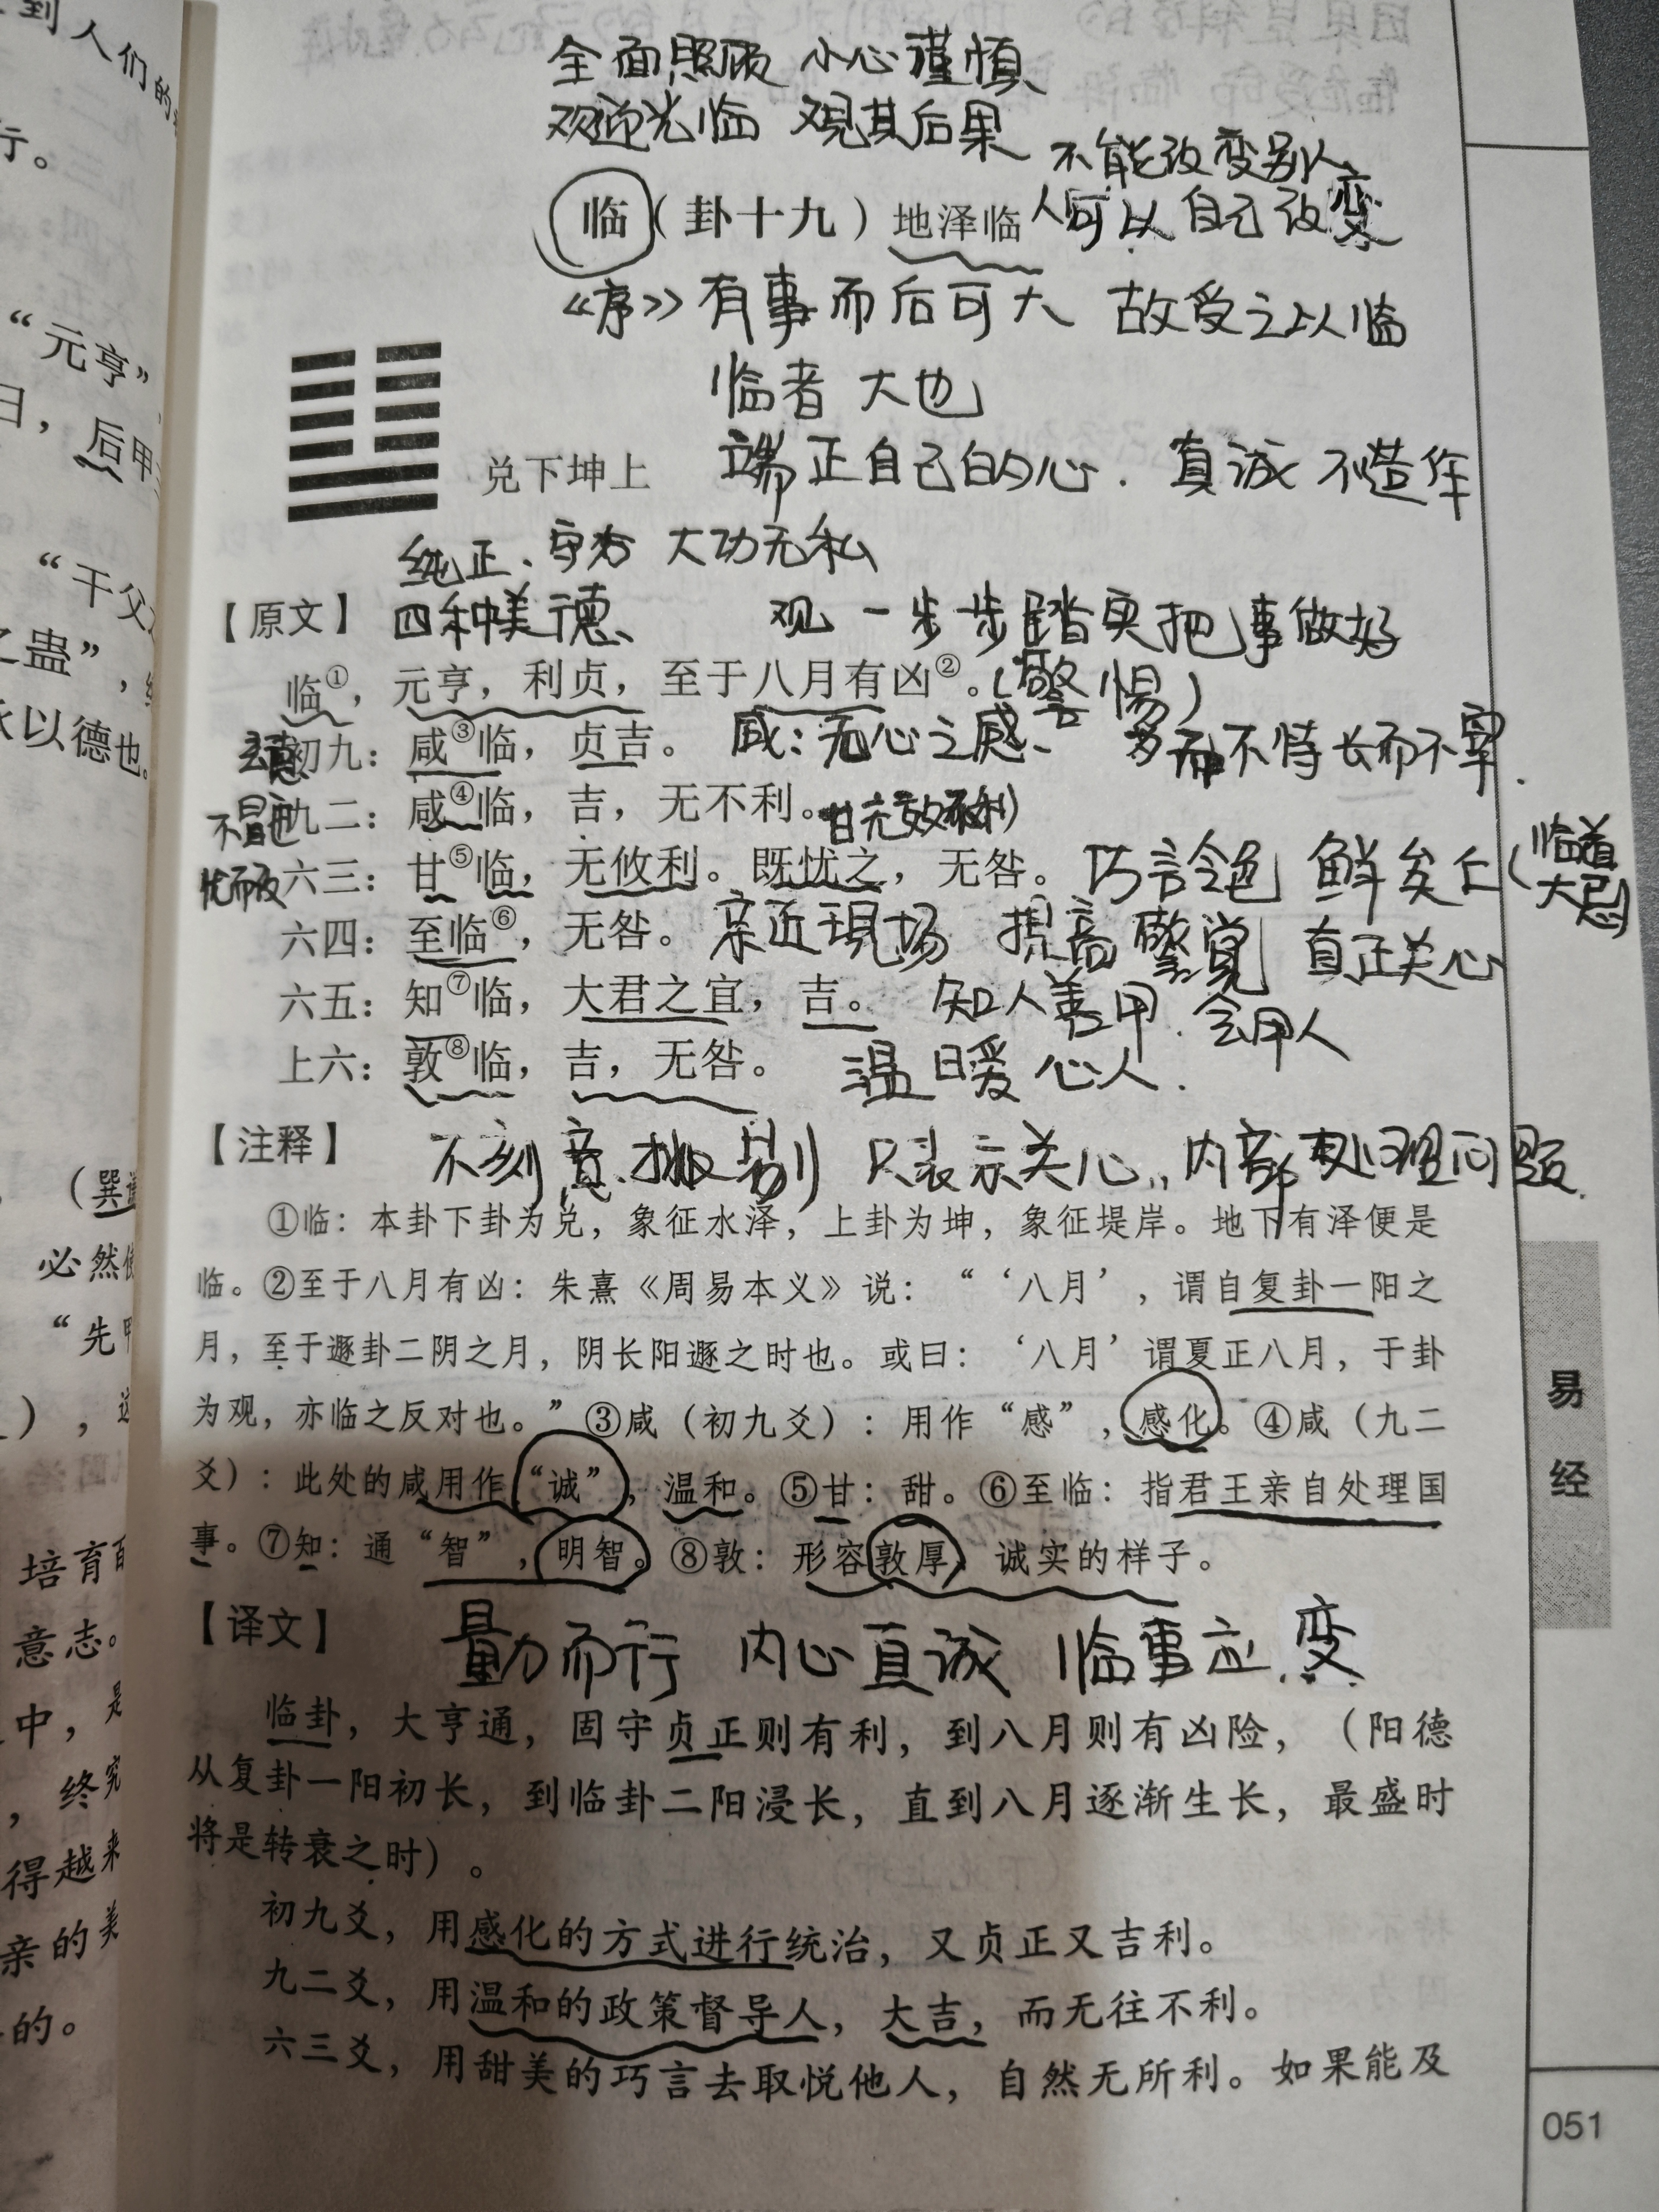 全面照顾 小心谨慎
观迎光临 观其后果
不能改变别人
临（卦十九）地泽临 人可以自己改变
《序》有事而后可大 故受之以临
临者 大也
兑下坤上 端正自己的心. 真诚 不造作
纯正、 大功无私
【原文】 四种美德、 观 一步步踏实把事做好
临①，元亨，利贞，至于八月有凶②。（警惕）
初九：咸③临，贞吉。 咸：无心之感、 不恃长而不宰.
九二：咸④临，吉，无不利。
六三：甘⑤临，无攸利。既忧之，无咎。 巧言令色 鲜矣仁（临道大忌）
忧而改
六四：至临⑥，无咎。 亲近现场 提高警觉 真正关心
六五：知⑦临，大君之宜，吉。 知人善用. 会用人
上六：敦⑧临，吉，无咎。 温暖心人.
【注释】 不刻意挑剔 只表示关心，内部处理问题.
①临：本卦下卦为兑，象征水泽，上卦为坤，象征堤岸。地下有泽便是
临。②至于八月有凶：朱熹《周易本义》说：“‘八月’，谓自复卦一阳之
月，至于遯卦二阴之月，阴长阳遯之时也。或曰：‘八月’谓夏正八月，于卦
为观，亦临之反对也。”③咸（初九爻）：用作“感”，感化。④咸（九二
爻）：此处的咸用作“诚”，温和。⑤甘：甜。⑥至临：指君王亲自处理国
事。⑦知：通“智”，明智。⑧敦：形容敦厚、诚实的样子。
【译文】 量力而行 内心真诚 临事应变
临卦，大亨通，固守贞正则有利，到八月则有凶险，（阳德
从复卦一阳初长，到临卦二阳浸长，直到八月逐渐生长，最盛时
将是转衰之时）。
初九爻，用感化的方式进行统治，又贞正又吉利。
九二爻，用温和的政策督导人，大吉，而无往不利。
六三爻，用甜美的巧言去取悦他人，自然无所利。如果能及
易经
051
到人们的
行。
“元亨”
日，后甲
“干父
之蛊”，
以德也。
（巽
必然
“先甲
），这
培育
意志。
中，是
，终究
得越来
亲的美
的。